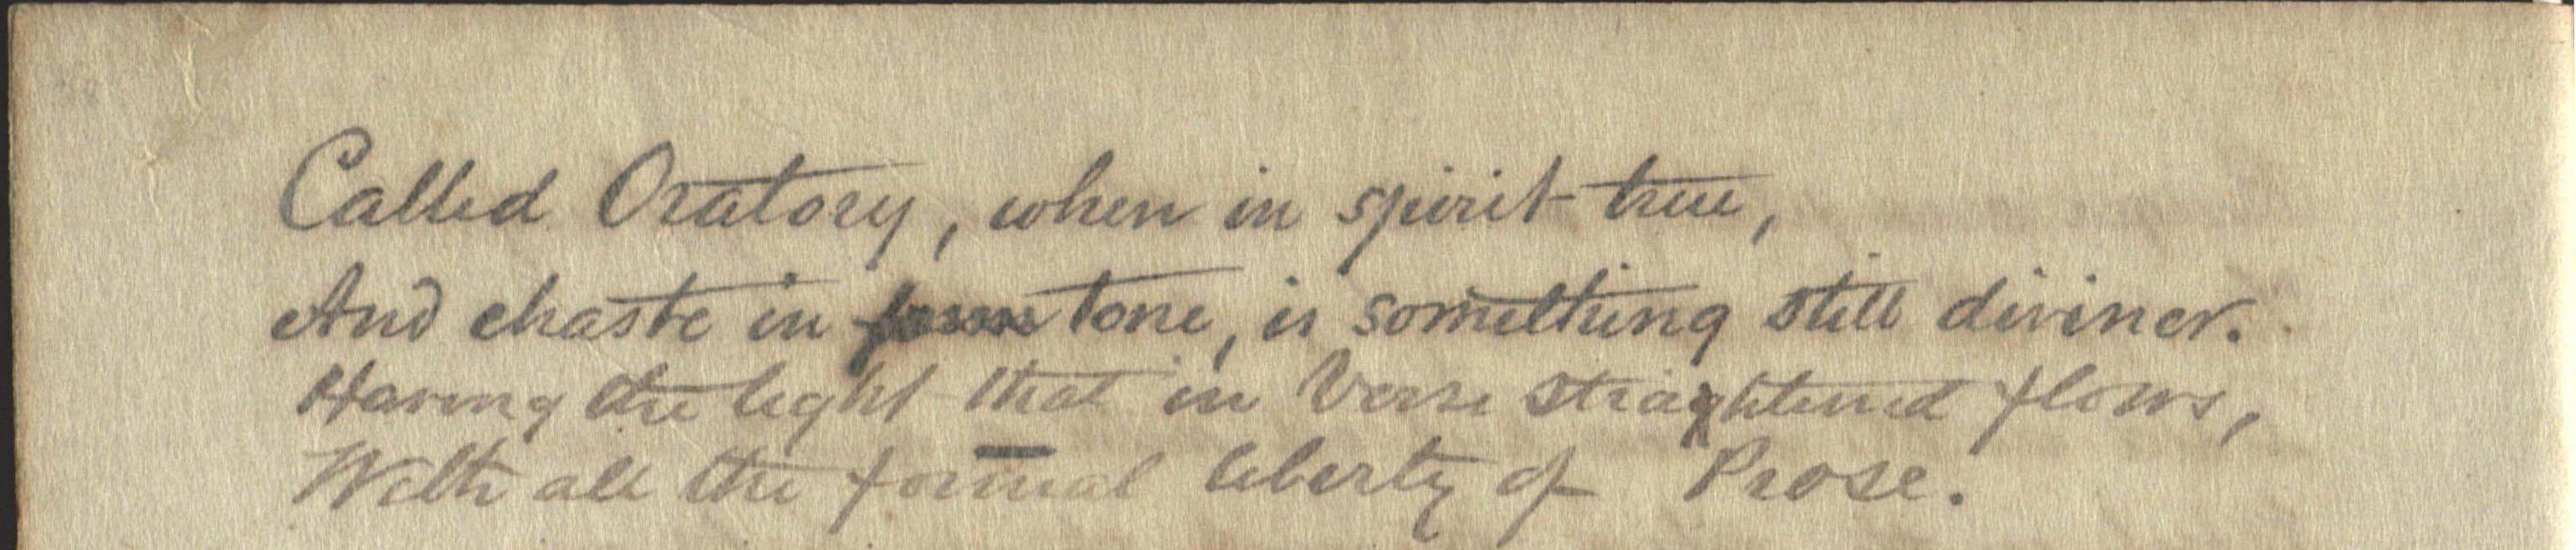 Called Oratory, when in spirit true,
And chaste in form tone, is something still diviner.
Having the light that in Verse straightened flows,
With all the formal liberty of Prose.